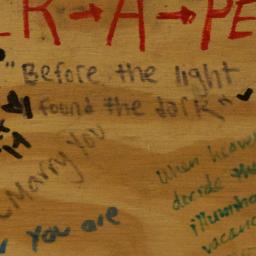 R→A→PE
"Before the light
I found the dark"
Marry You
you are
When heaven
decide the